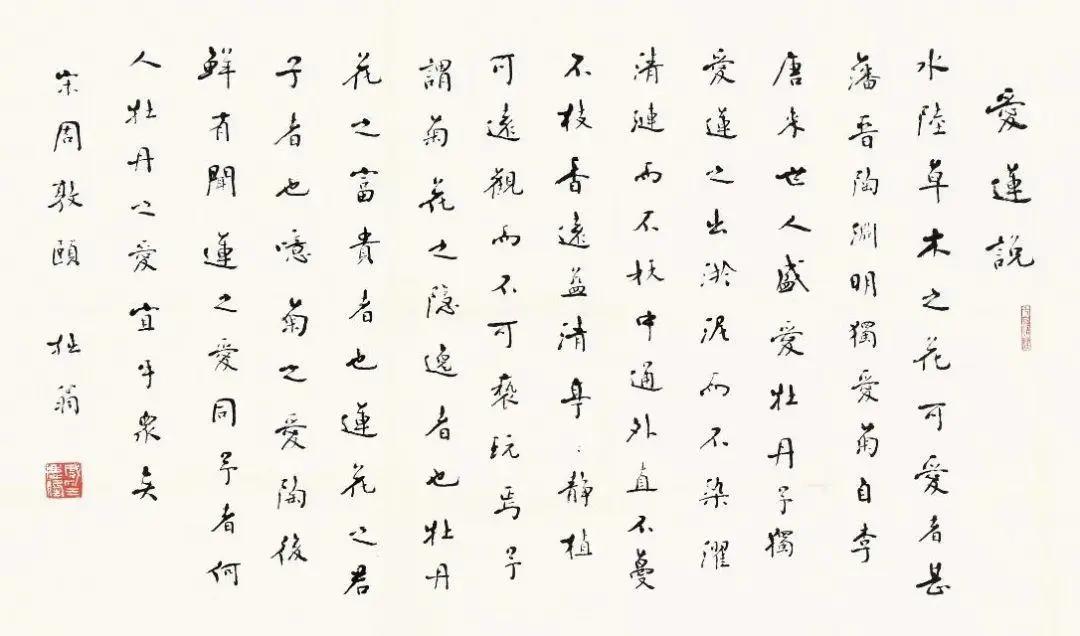 愛蓮說
水陸草木之花可愛者甚
藩晋陶淵明獨愛菊自李
唐来世人盛愛牡丹予獨
愛蓮之出淤泥而不染濯
清漣而不妖中通外直不蔓
不枝香遠益清亭〻静植
可遠觀而不可褻玩焉予
謂菊花之隱逸者也牡丹
花之富貴者也蓮花之君
子者也噫菊之愛陶後
鮮有聞蓮之愛同予者何
人牡丹之愛宜乎衆矣
宋周敦頤 翁